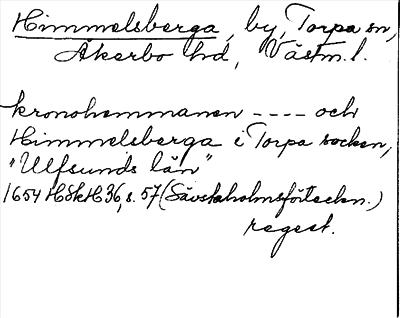 Himmelsberga, by, Torpa sn,
Åkerbo hd, Västm.l.
kronohemmanen ---- och
Himmelsberga i Torpa socken,
"Ulfsunds län"
1654 HSkH 36, s. 57 (Sävstaholmsförteckn.)
regest.